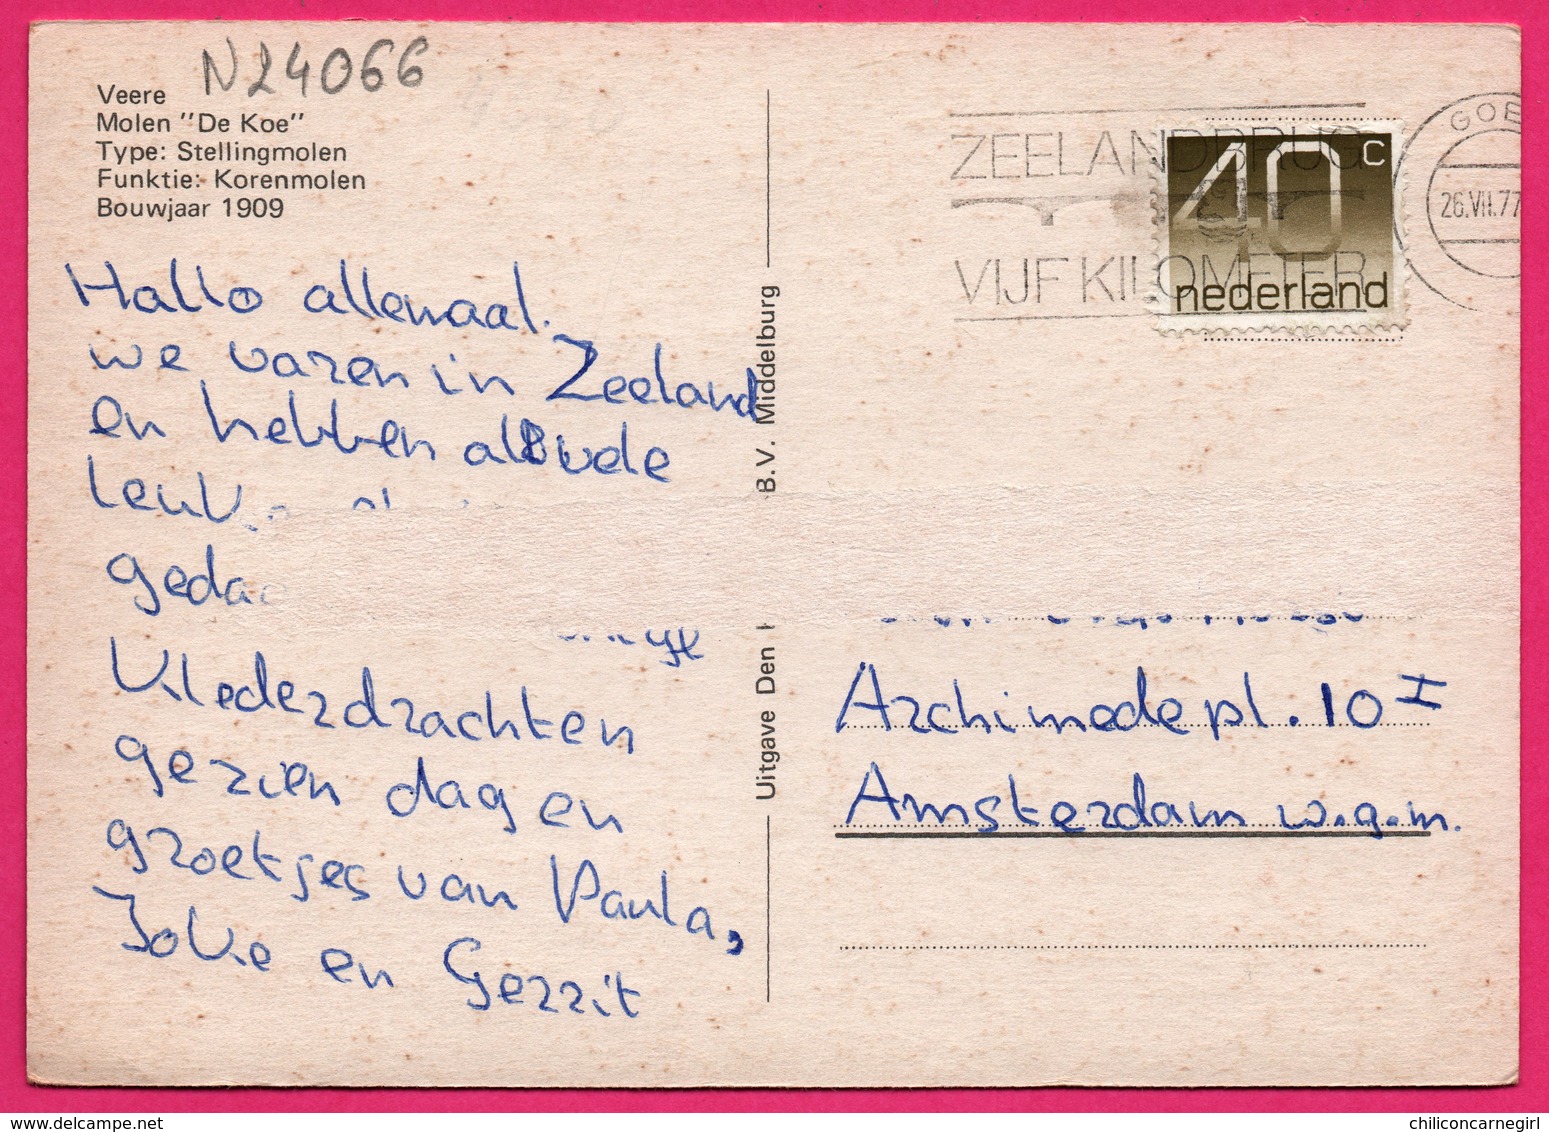 N24066
Veere
Molen "De Koe"
Type: Stellingmolen
Funktie: Korenmolen
Bouwjaar 1909
Hallo allemaal.
we waren in Zeeland
en hebben al vele
leuke
gedaa
Klederdrachten
gezien dag en
groetjes van Paula,
Joke en Gerrit
Uitgave Den
B.V. Middelburg
ZEELANDBRUG
VIJF KILOMETER
GOE
26.VII.77
40c
nederland
Archimedepl. 10 I
Amsterdam w.g.m.
delcampe.net
chiliconcarnegirl